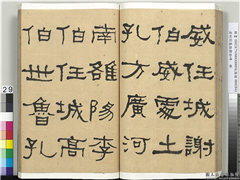 威任城謝
伯威處土
孔方廣河
南雒陽李
伯任城高
伯世魯孔
29